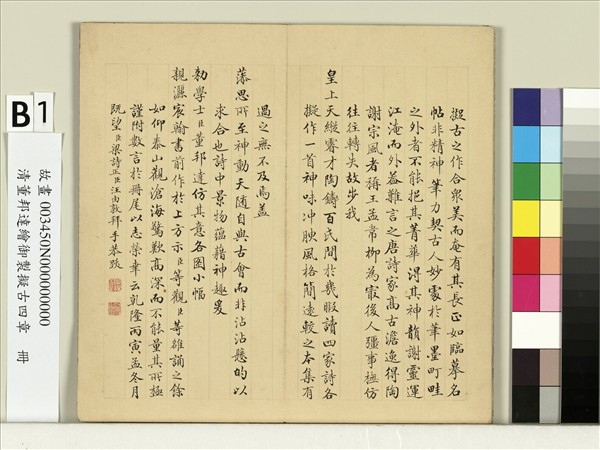 擬古之作合眾美而奄有其長正如臨摹名
帖非精神筆力契古人妙處於筆墨町畦
之外者不能挹其菁華涓其神韻謝靈運
江淹而外蓋難言之唐詩家高古澹逸得陶
謝宗風者稱王孟常柳為最後人彊事橅仿
往往轉失故步我
皇上天縱睿才陶鑄百氏間於幾暇讀四家詩各
擬作一首神味沖腴風格簡遠較之本集有
過之無不及焉蓋
藻思所至神動天隨自與古會而非沾沾懸的以
求合也詩中景物蘊藉神趣爰
勑學士臣董邦達仿其意各圖小幅
親灑宸翰書前作於上方示臣等觀臣等雒誦之餘
如仰泰山觀滄海驚歎高深而不能量其所極
謹附數言於冊尾以志榮幸云乾隆丙寅孟冬月
既望臣梁詩正臣汪由敦拜手恭跋
B1
故畫 003450N000000000
清董邦達繪御製擬古四章 冊